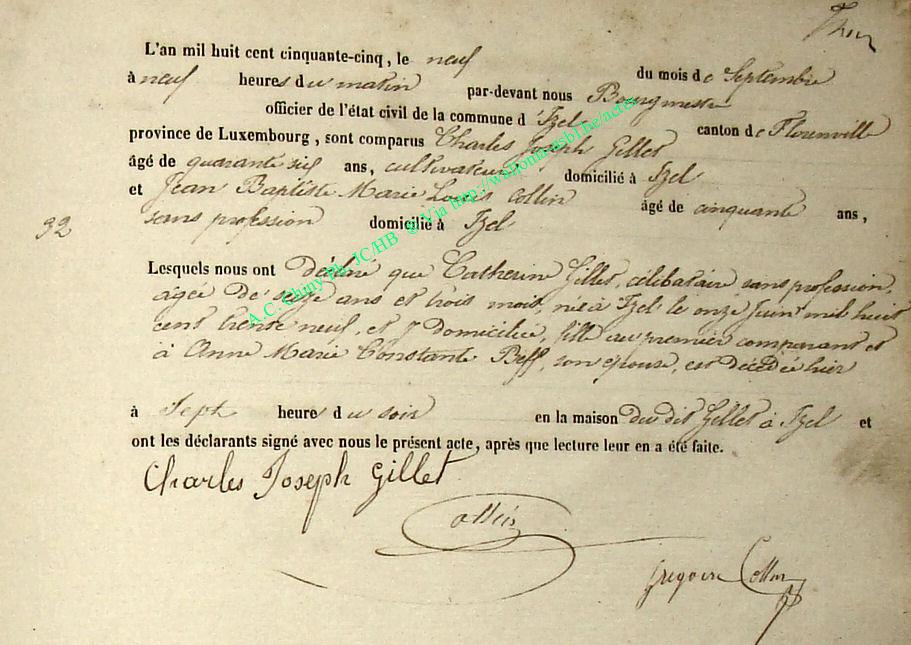 L'an mil huit cent cinquante-cinq, le neuf du mois de Septembre
à neuf heures du matin par-devant nous Bourgmestre
officier de l'état civil de la commune d'Izel canton de Florenville
province de Luxembourg, sont comparus Charles Joseph Gillet
âgé de quarante six ans, cultivateur domicilié à Izel
et Jean Baptiste Marie Louis Collin âgé de cinquante ans,
sans profession domicilié à Izel
32
Lesquels nous ont déclaré que Catherine Gillet, célibataire sans profession,
âgée de seize ans et trois mois, née à Izel le onze Juin mil huit
cent trente neuf, et y domiciliée, fille au premier comparant et
à Anne Marie Constante Beff, son épouse, est décédée hier
à Sept heure du soir en la maison du dit Gillet à Izel et
ont les déclarants signé avec nous le présent acte, après que lecture leur en a été faite.
Charles Joseph Gillet
Collin
Grégoire Collin
A.C. Chiny Ph. JC/HB @ Via http://wallonica.gbl.be/actes